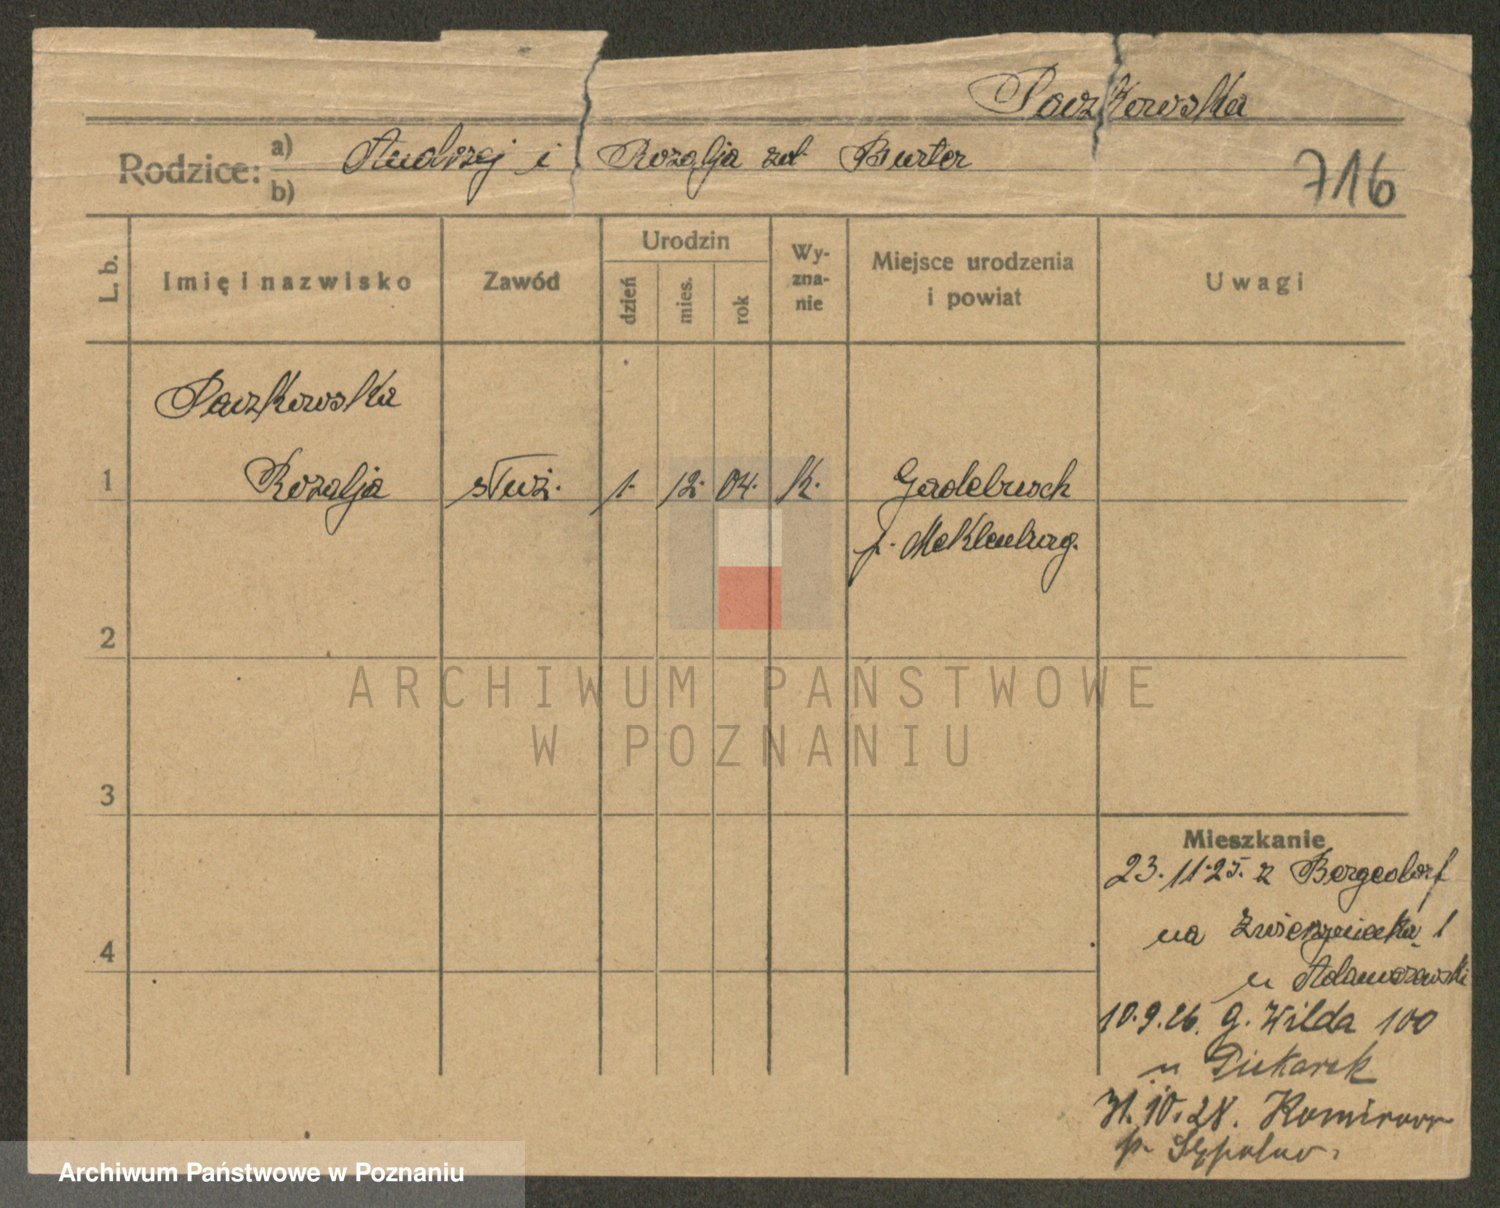 Paczkowska
Rodzice: a) Andrzej i Rozalja zd. Burter
b)
716
L. b.
Imię i nazwisko
Zawód
Urodzin
dzień
mies.
rok
Wy-
zna-
nie
Miejsce urodzenia
i powiat
Uwagi
Paczkowska
1 Rozalja służ. 1. 12. 04. K. Gadebusch
p. Meklenburg.
2
3
4
ARCHIWUM PAŃSTWOWE
W POZNANIU
Mieszkanie
23.11.25. z Bergedorf
na Zwierzyniecka 1
u Adamczewski
10.9.26. G. Wilda 100
u Piekarek
31.10.28.
p. Sępolno.
Archiwum Państwowe w Poznaniu